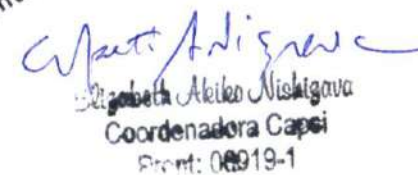 Elizabeth Akiko Nishigava
Coordenadora Capsi
Pront: 06919-1